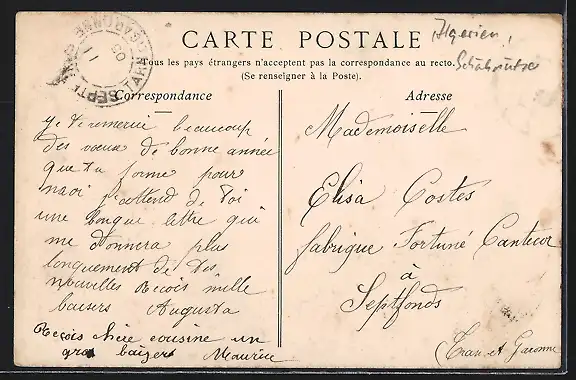 CARTE POSTALE
Algerien,
Tous les pays étrangers n'acceptent pas la correspondance au recto.
(Se renseigner à la Poste).
Correspondance
Adresse
SEPTFONDS
TARN & GARONNE
11
05
Je te remercie beaucoup
des vœux de bonne année
que tu forme pour
moi j'attend de toi
une longue lettre qui
me donnera plus
longuement de tes
nouvelles Recois mille
baisers Augusta
Reçois chère cousine un
gros baiser Maurice
Mademoiselle
Elisa Costes
fabrique Fortuné Cantecor
à
Septfonds
(Tarn et Garonne